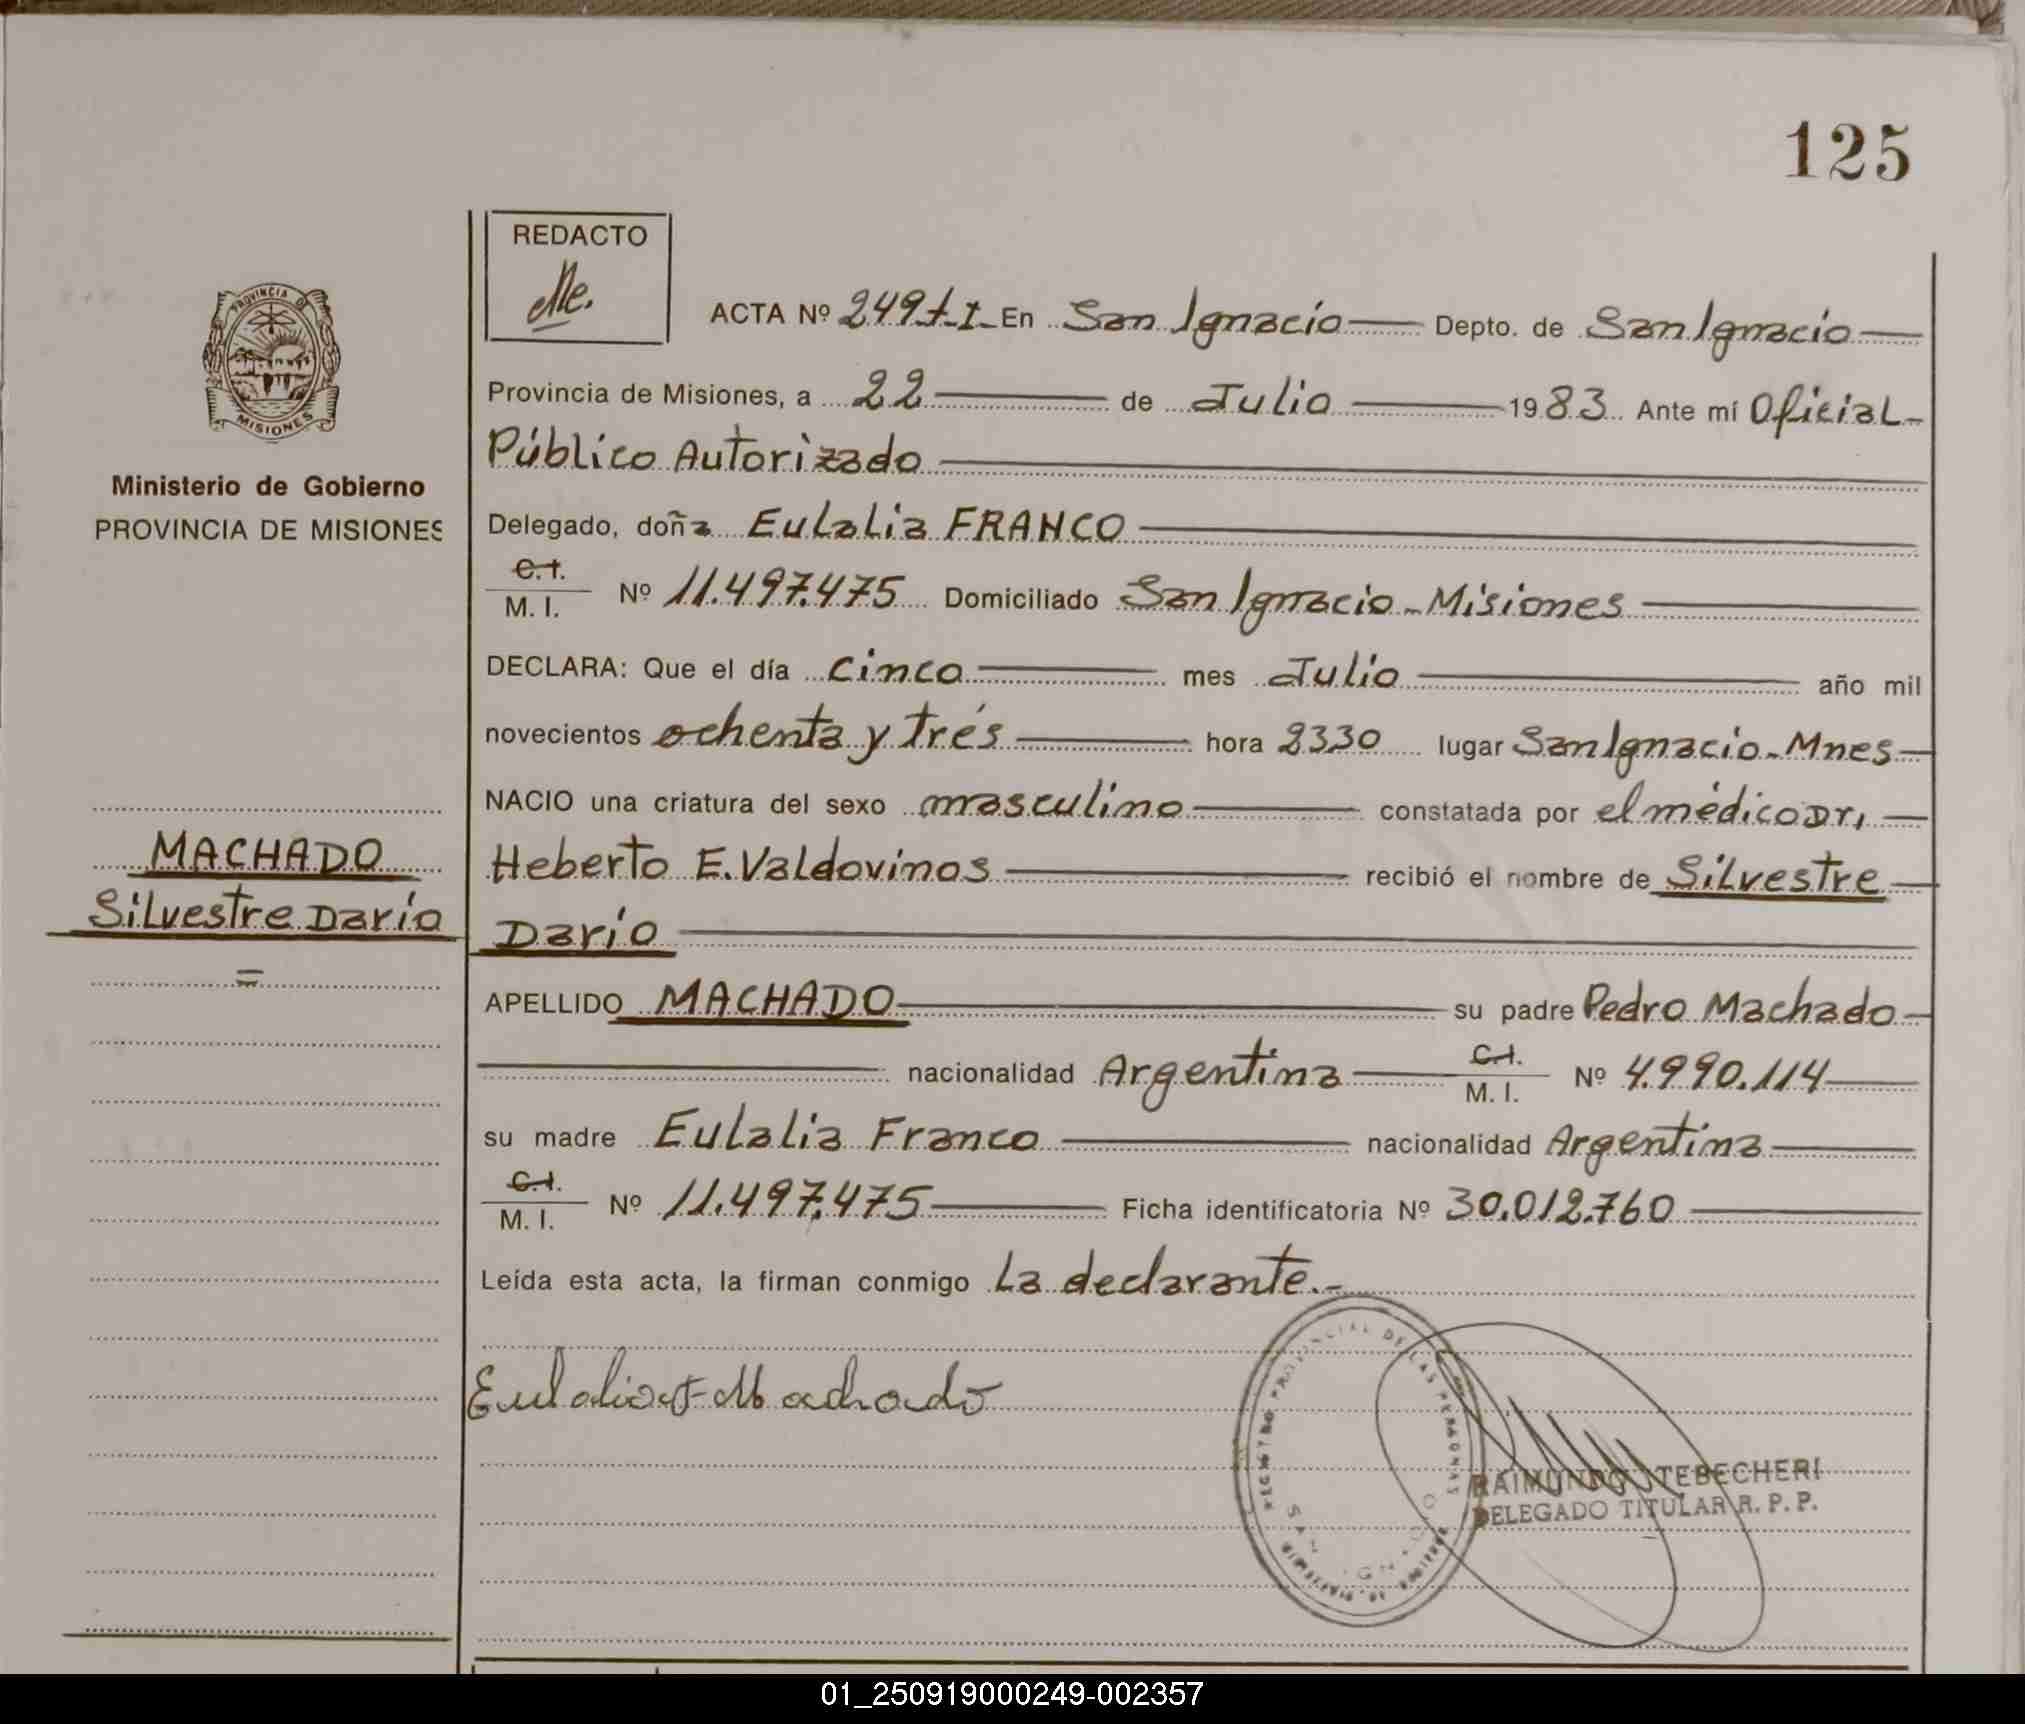 125
REDACTO
Me.
PROVINCIA DE
MISIONES
Ministerio de Gobierno
PROVINCIA DE MISIONES
MACHADO
Silvestre Darío
=
ACTA Nº 249 t-I- En San Ignacio Depto. de San Ignacio
Provincia de Misiones, a 22 de Julio 1983 Ante mí Oficial
Público Autorizado
Delegado, doña Eulalia FRANCO
C.I.
M. I. Nº 11.497.475 Domiciliado San Ignacio - Misiones
DECLARA: Que el día cinco mes Julio año mil
novecientos ochenta y trés hora 2330 lugar San Ignacio - Mnes
NACIO una criatura del sexo masculino constatada por el médico Dr,
Heberto E. Valdovinos recibió el nombre de Silvestre
Darío
APELLIDO MACHADO su padre Pedro Machado
nacionalidad Argentina C.I. M. I. Nº 4.990.114
su madre Eulalia Franco nacionalidad Argentina
C.I.
M. I. Nº 11.497.475 Ficha identificatoria Nº 30.012.760
Leída esta acta, la firman conmigo La declarante.-
Eulalia F Machado
REGISTRO PROVINCIAL DE LAS PERSONAS
SAN IGNACIO
RAIMUNDO TEBECHERI
DELEGADO TITULAR R. P. P.
01_250919000249-002357